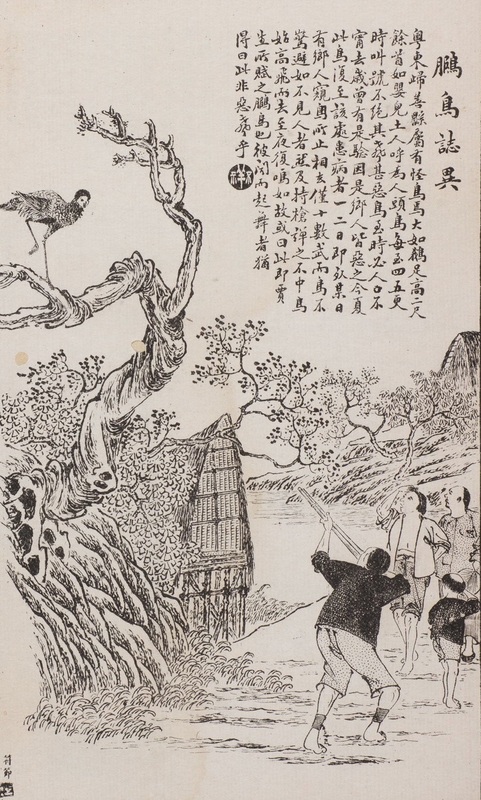 鵩鳥誌異
粵東歸善縣屬有怪鳥焉大如鶴足高二尺
餘首如嬰兒土人呼為人頭鳥每至四五更
時叫號不絕其聲甚惡鳥至時人口不
甯去歲曾有是驗因是鄉人皆惡之今夏
此鳥復至該處患病者一二日即斃某日
有鄉人窺鳥所止相去僅十數武而鳥不
驚避如不見人者然及持槍彈之不中鳥
始高飛而去至夜復鳴如故或曰此即賈
生所賦之鵩鳥也彼聞而起舞者猶
得曰此非惡聲乎
符節